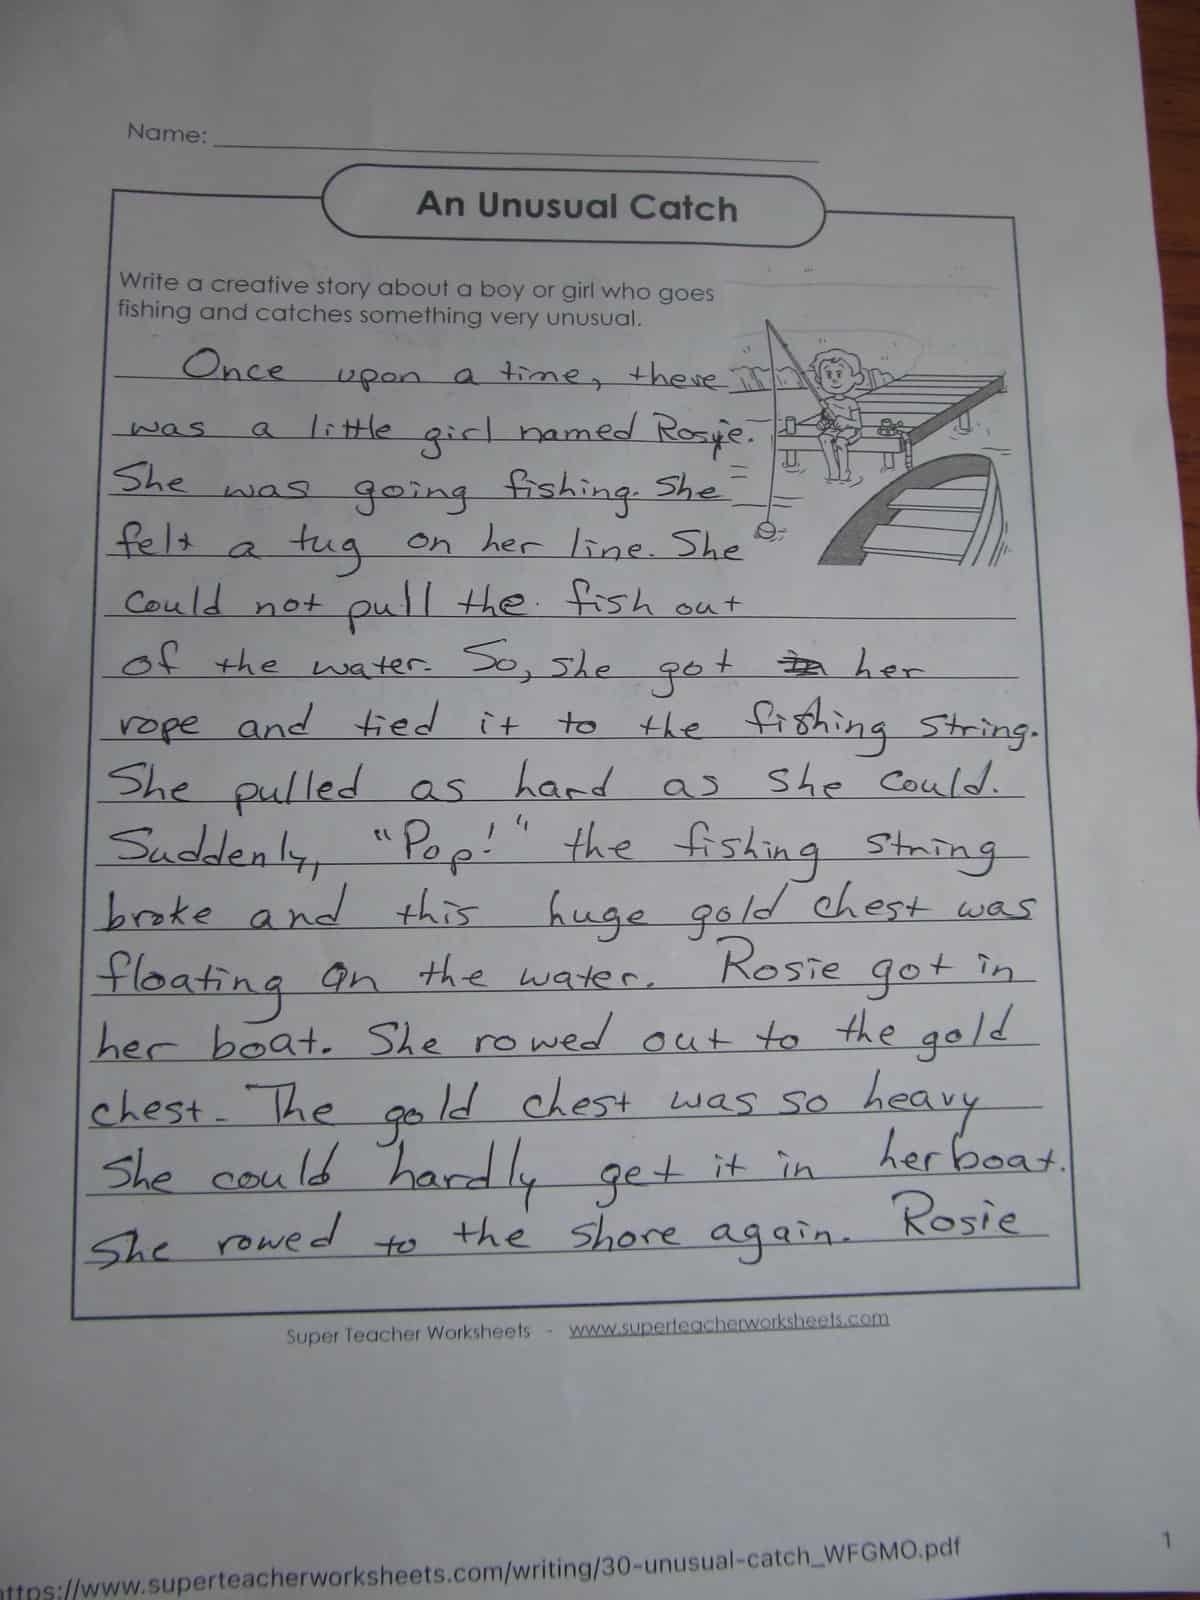 Name:
An Unusual Catch
Write a creative story about a boy or girl who goes
fishing and catches something very unusual.
Once upon a time, there
was a little girl named Rosie.
She was going fishing. She
felt a tug on her line. She
could not pull the fish out
of the water. So, she got her
rope and tied it to the fishing string.
She pulled as hard as she could.
Suddenly, "Pop!" the fishing string
broke and this huge gold chest was
floating on the water. Rosie got in
her boat. She rowed out to the gold
chest. The gold chest was so heavy
She could hardly get it in her boat.
She rowed to the shore again. Rosie
Super Teacher Worksheets - www.superteacherworksheets.com
https://www.superteacherworksheets.com/writing/30-unusual-catch_WFGMO.pdf
1